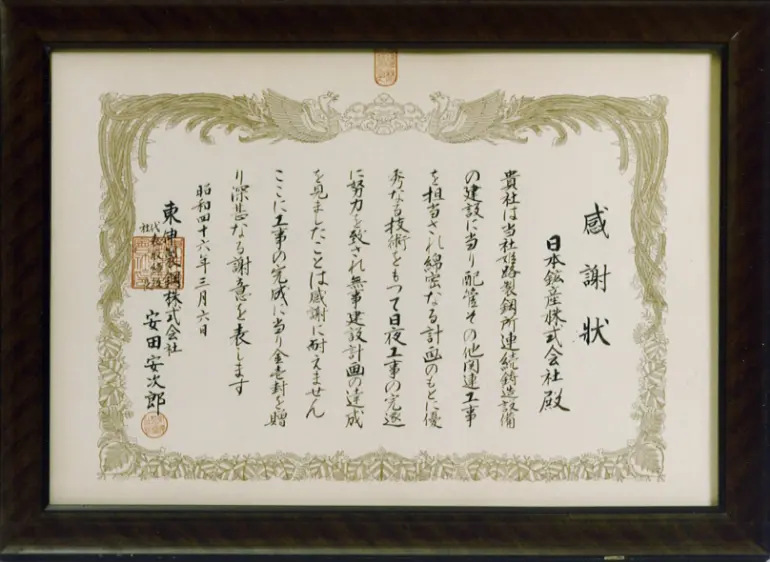 感謝状
日本鉱産株式会社殿
貴社は当社姫路製鋼所連続鋳造設備
の建設に当り配管その他関連工事
を担当され綿密なる計画のもとに優
秀なる技術をもつて日夜工事の完遂
に努力を致され無事建設計画の達成
を見ましたことは感謝に耐えません
ここに工事の完成に当り金壱封を贈
り深甚なる謝意を表します
昭和四十六年三月六日
東伸製鋼株式会社
安田安次郎